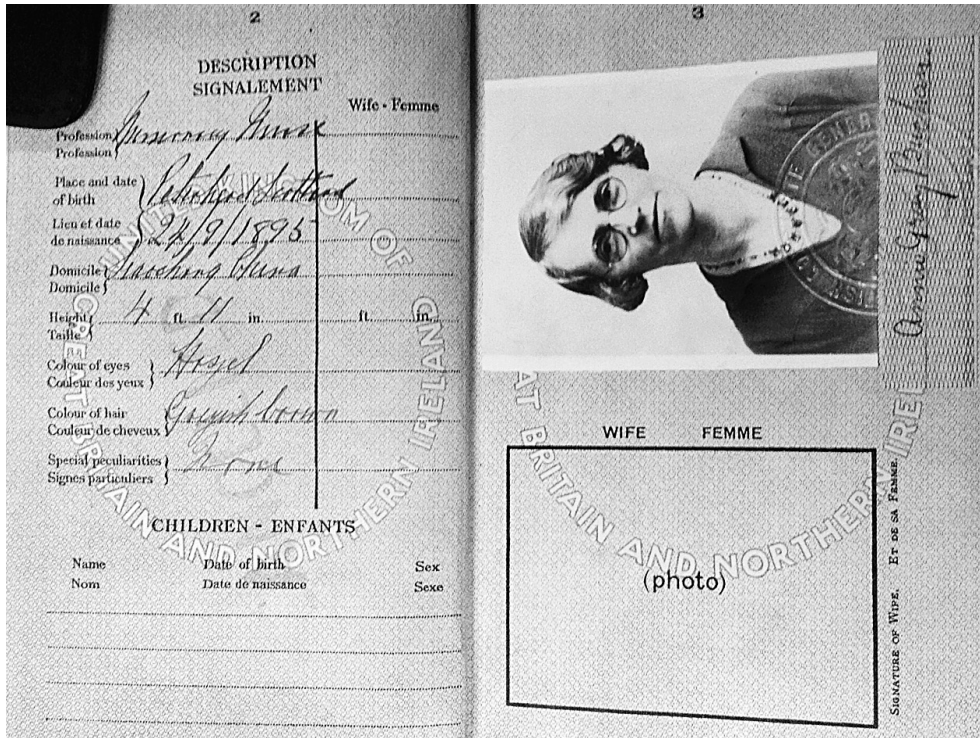 2
DESCRIPTION
SIGNALEMENT
Wife - Femme
Profession
Profession
Missionary Nurse
Place and date
of birth
Peterhead Scotland
Lieu et date
de naissance
24/9/1895
Domicile
Domicile
China
Height
Taille
4 ft. 11 in. ft. in.
Colour of eyes
Couleur des yeux
Hazel
Colour of hair
Couleur de cheveux
Greyish brown
Special peculiarities
Signes particuliers
None
CHILDREN - ENFANTS
Name Date of birth Sex
Nom Date de naissance Sexe
UNITED KINGDOM OF
GREAT BRITAIN AND NORTHERN IRELAND
3
Annie Grey Buchan
WIFE FEMME
(photo)
AT BRITAIN AND NORTHERN IREL
SIGNATURE OF WIFE. ET DE SA FEMME.